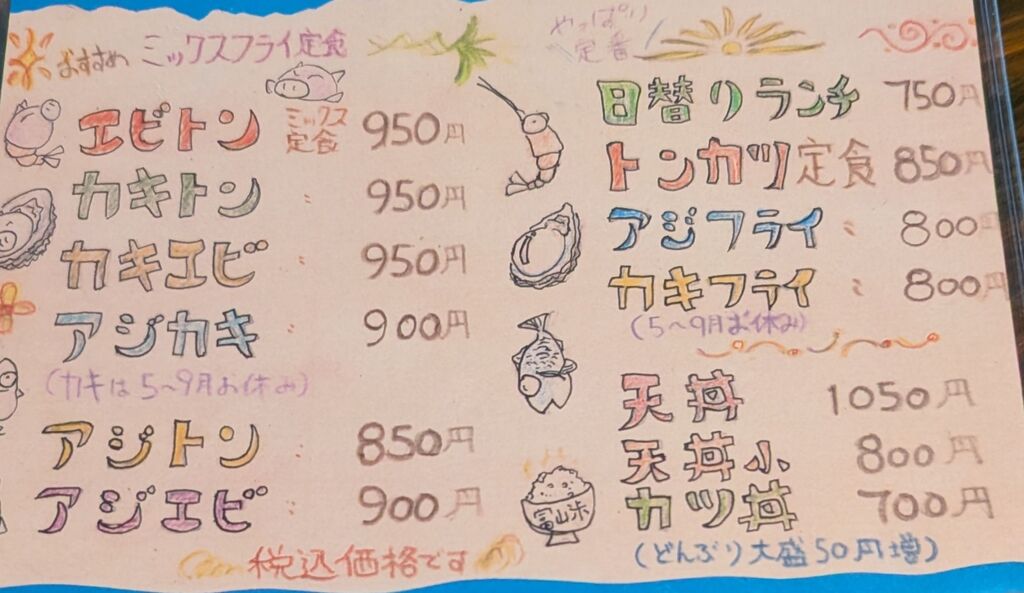 おすすめ ミックスフライ定食
エビトン ミックス定食 950円
カキトン 〃 950円
カキエビ 〃 950円
アジカキ 〃 900円
(カキは5~9月お休み)
アジトン 〃 850円
アジエビ 〃 900円
税込価格です
やっぱり
定番
日替りランチ 750円
トンカツ定食 850円
アジフライ 〃 800円
カキフライ 〃 800円
(5~9月お休み)
天丼 1050円
天丼小 800円
カツ丼 700円
(どんぶり大盛50円増)
富山米